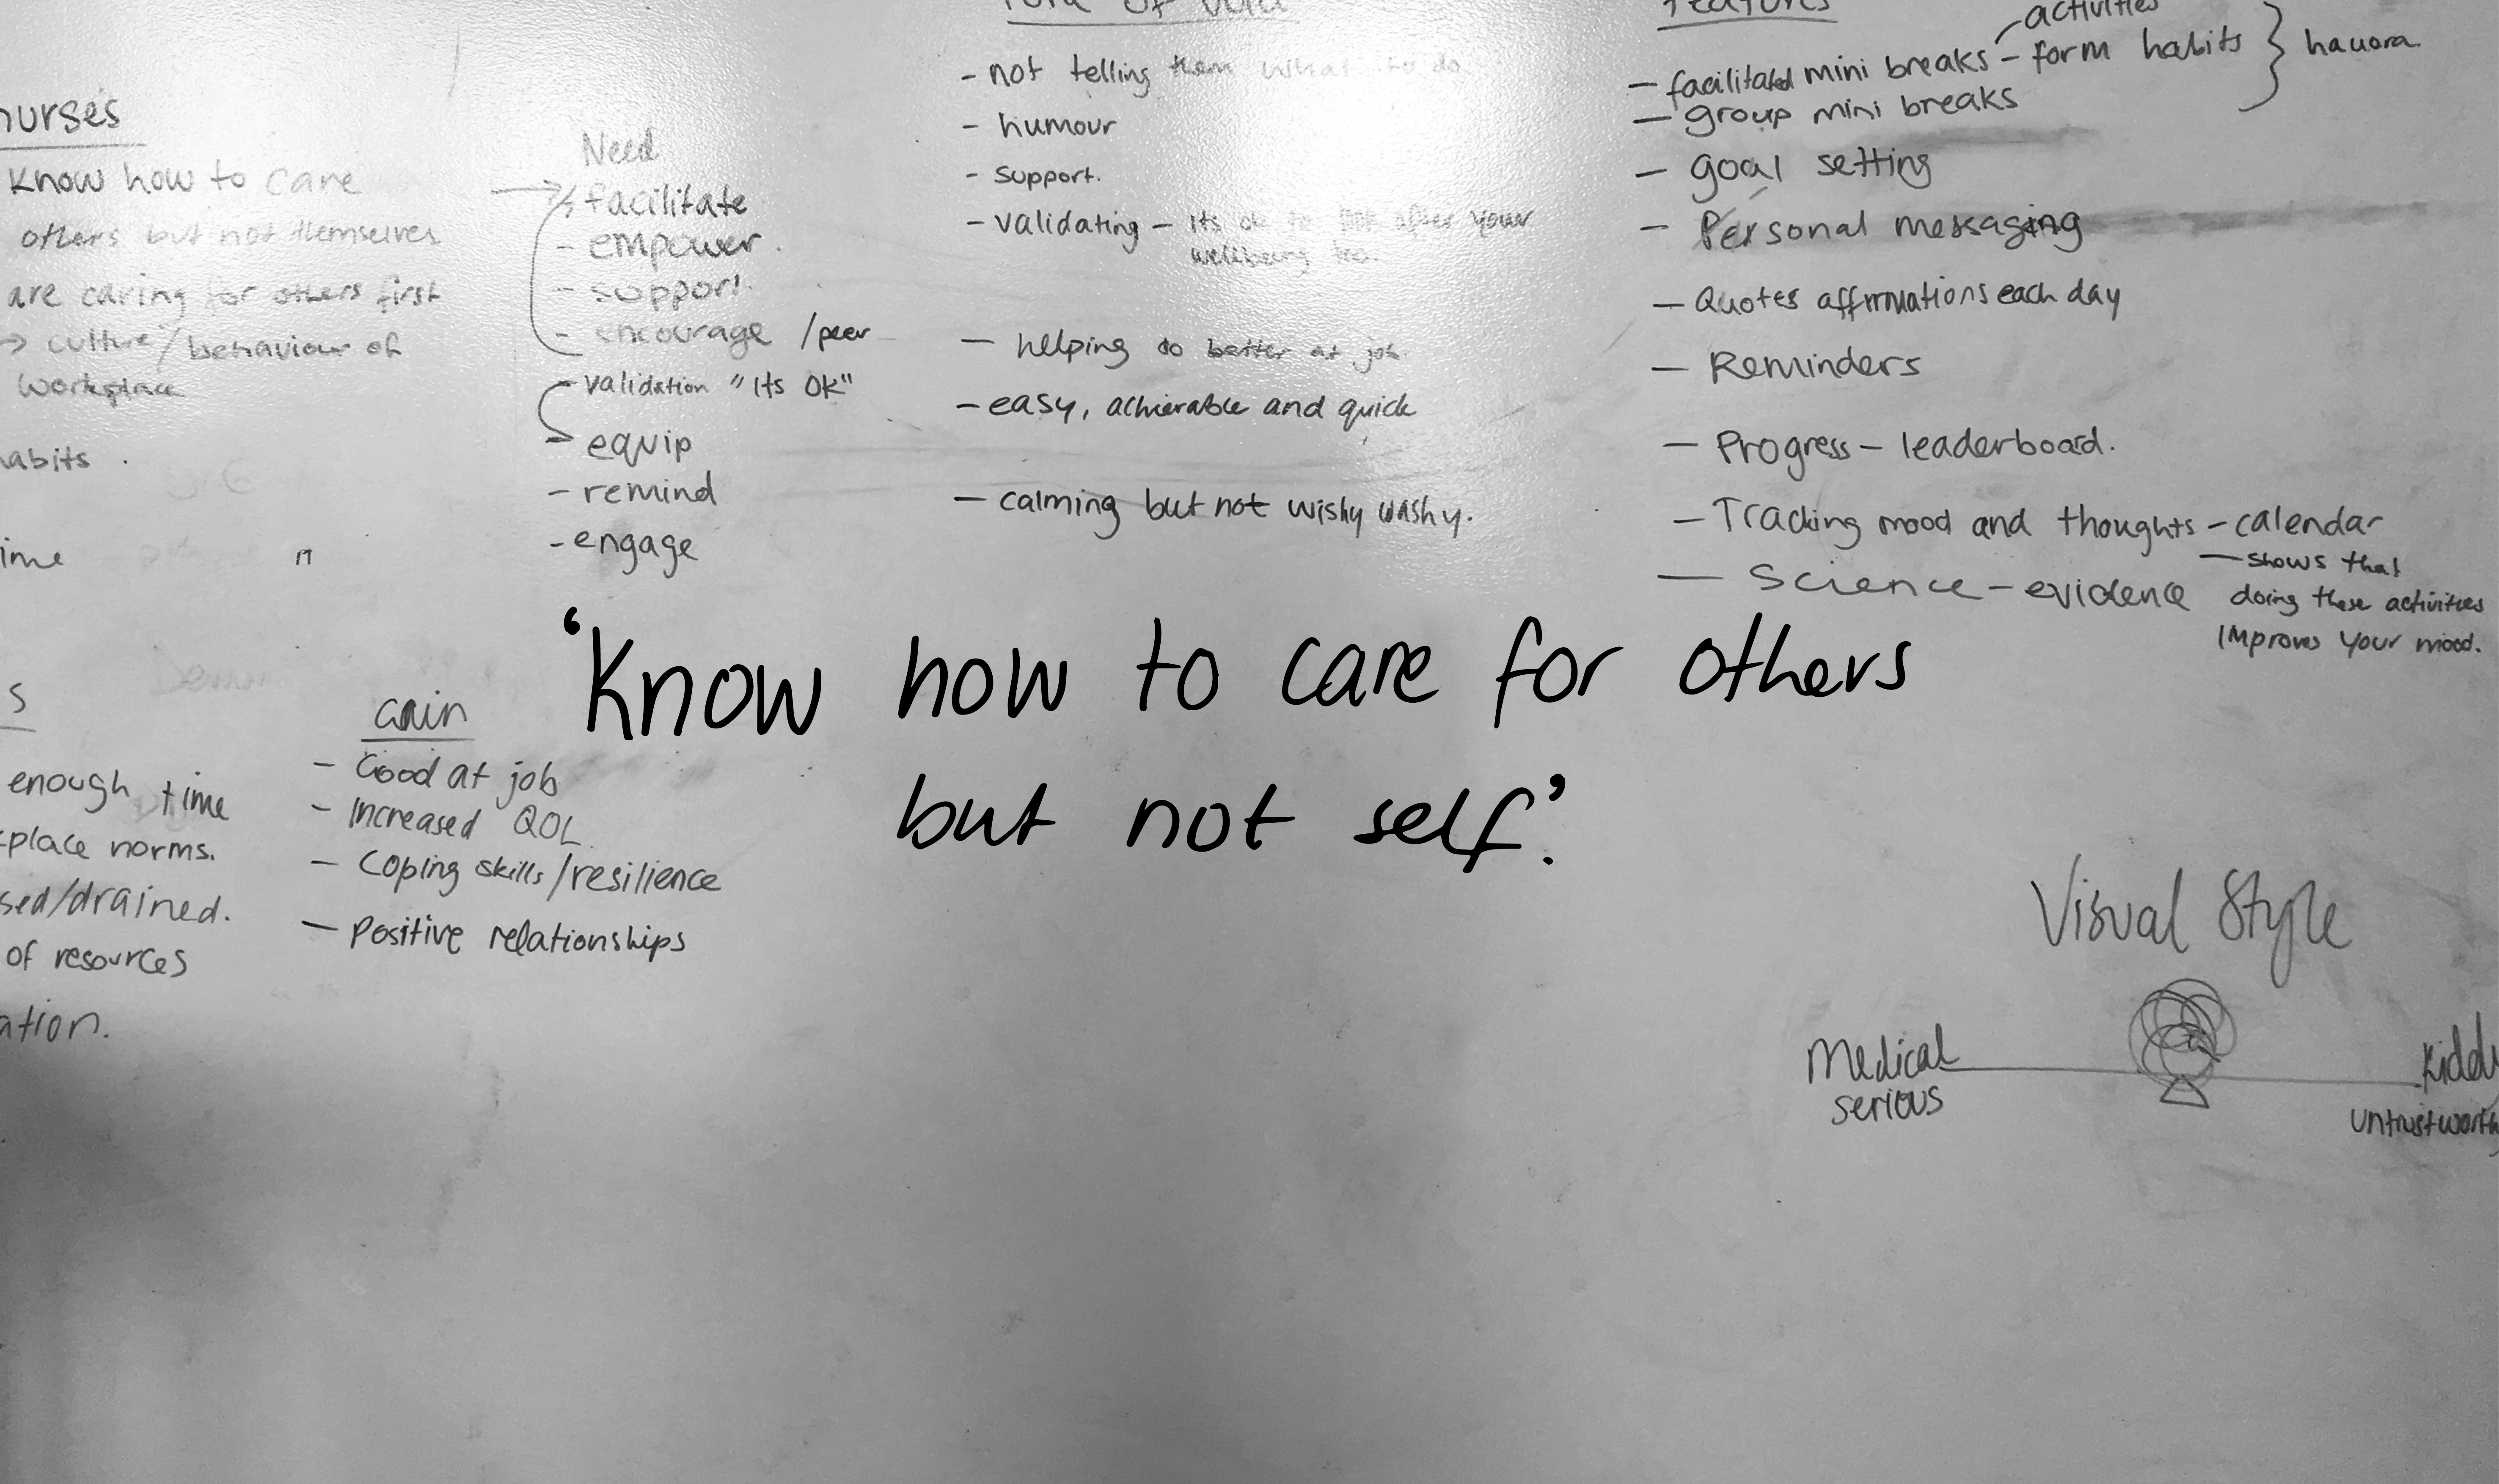 nurses
Know how to care
others but not themselves
are caring for others first
→ culture/behaviour of
workplace
habits
Need
- facilitate
- empower.
- support.
- encourage /peer
- validation "Its OK"
- equip
- remind
- engage
Tone of
- not telling them what to do
- humour
- support.
- validating - Its ok to look after your
wellbeing too.
- helping do better at job.
- easy, achievable and quick
- calming but not wishy washy.
Features
- facilitated mini breaks - activities
- form habits } hauora
- group mini breaks
- goal setting
- Personal messaging
- Quotes affirmations each day
- Reminders
- Progress - leaderboard.
- Tracking mood and thoughts - calendar
- shows that
doing these activities
improves your mood.
- Science - evidence
'Know how to care for others
but not self'.
s
enough time
place norms.
sed/drained.
of resources
ation.
Gain
- Good at job
- Increased QOL
- Coping skills/resilience
- Positive relationships
Visual Style
Medical
serious
Kiddy
untrustworthy